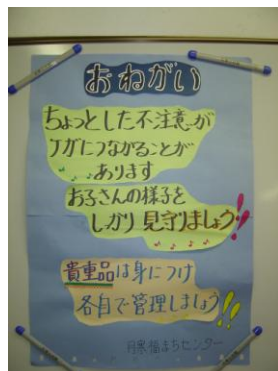 おねがい
ちょっとした不注意が
ケガにつながることが
あります
お子さんの様子を
しっかり見守りましょう!!
貴重品は身につけ
各自で管理しましょう!!
月寒福まちセンター